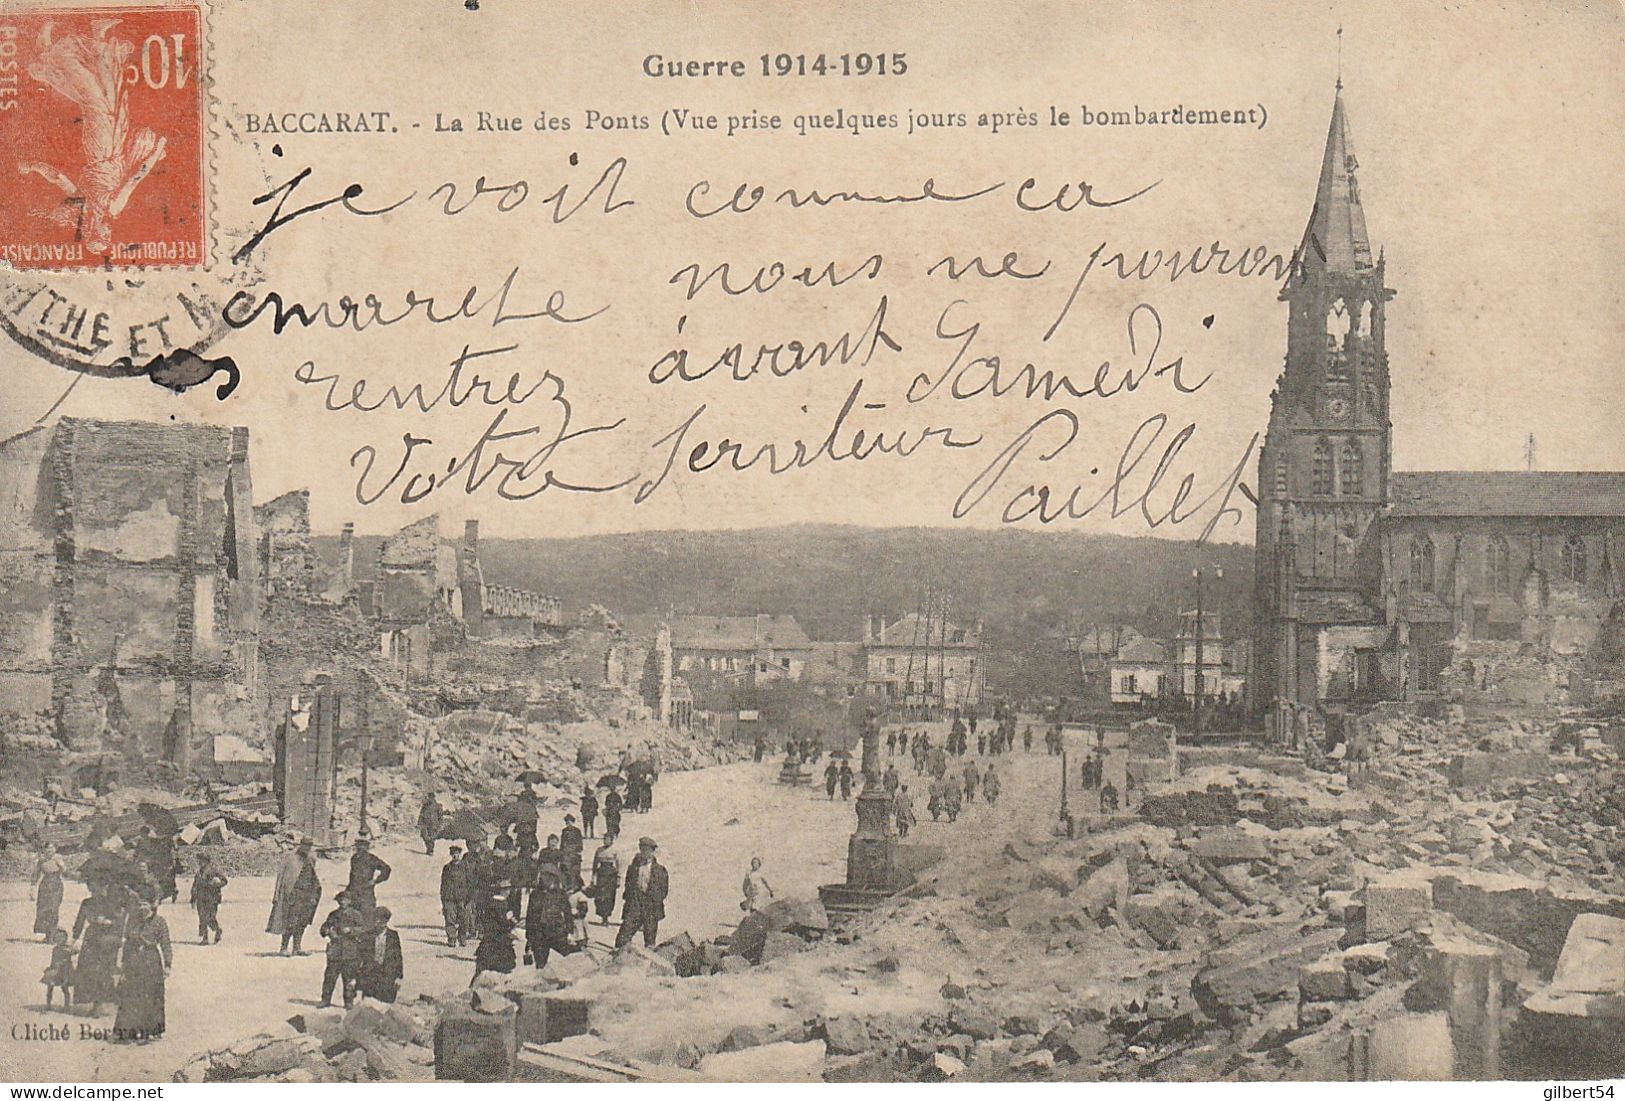 Guerre 1914-1915
BACCARAT. - La Rue des Ponts (Vue prise quelques jours après le bombardement)
10c
POSTES
REPUBLIQUE FRANÇAISE
THE ET M
je voit comme ca
marche nous ne pouron
rentrez avant Samedi
Votre Serviteur Paillet
Cliché Bertrand
gilbert54